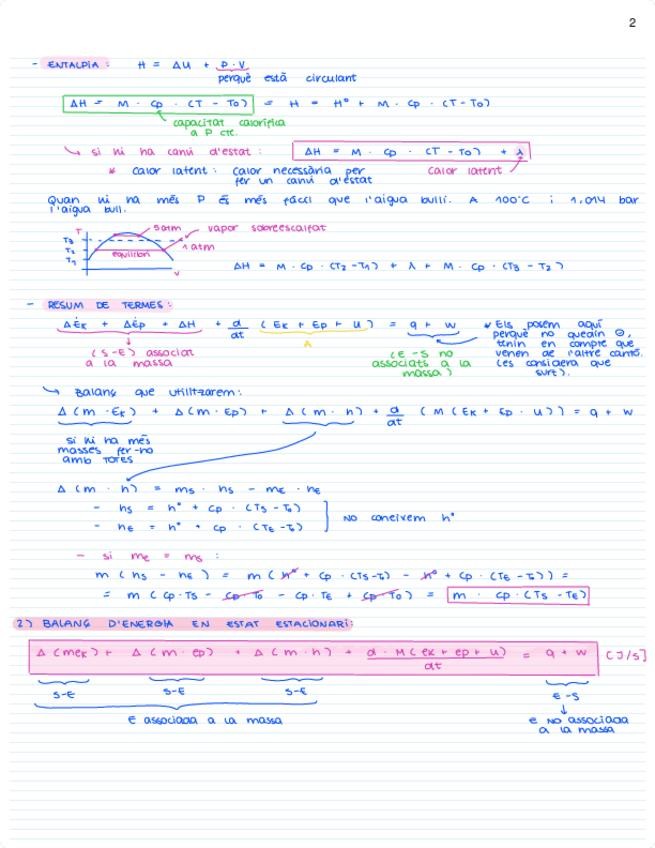 2
- ENTALPIA: H = ΔU + P.V
perquè està circulant
ΔH = M · Cp · (T - To) = H = H° + M · Cp · (T - To)
capacitat calorífica
a P ctt.
↳ si hi ha canvi d'estat: ΔH = M · Cp · (T - To) + λ
* Calor latent: Calor necessària per Calor latent
fer un canvi d'estat
Quan hi ha més P és més fàcil que l'aigua bulli. A 100°C i 1,014 bar
l'aigua bull.
T 5 atm vapor sobreescalfat
T3
T2 equilibri 1 atm
T1
V
ΔH = M · Cp · (T2 - T1) + λ + M · Cp · (T3 - T2)
- RESUM DE TERMES:
ΔĖk + ΔĖp + ΔH + d/dt (Ek + Ep + U) = q + w
A
(S-E) associat
a la massa
(E-S no
associats a la
massa)
* Els posem aquí
perquè no quedin ⊖,
tenin en compte que
venen de l'altre cantó.
(es considera que
surt).
↳ Balanç que utilitzarem:
Δ(m · Ek) + Δ(m · Ep) + Δ(m · h) + d/dt (M(Ek + Ep · U)) = q + w
si hi ha més
masses fer-ho
amb TOTES
Δ(m · h) = ms · hs - mE · hE
- hs = h° + Cp · (Ts - To)
- hE = h° + Cp · (TE - To)
NO coneixem h°
- si mE = ms:
m (hs - hE) = m (h° + Cp · (Ts - To) - h° + Cp · (TE - To)) =
= m (Cp · Ts - Cp · To - Cp · TE + Cp · To) = m · Cp · (Ts - TE)
2) BALANÇ D'ENERGIA EN ESTAT ESTACIONARI:
Δ(mek) + Δ(m · ep) + Δ(m · h) + d · M(ek + ep + u)/dt = q + w [J/s]
S-E S-E S-E E-S
E associada a la massa
E NO associada
a la massa